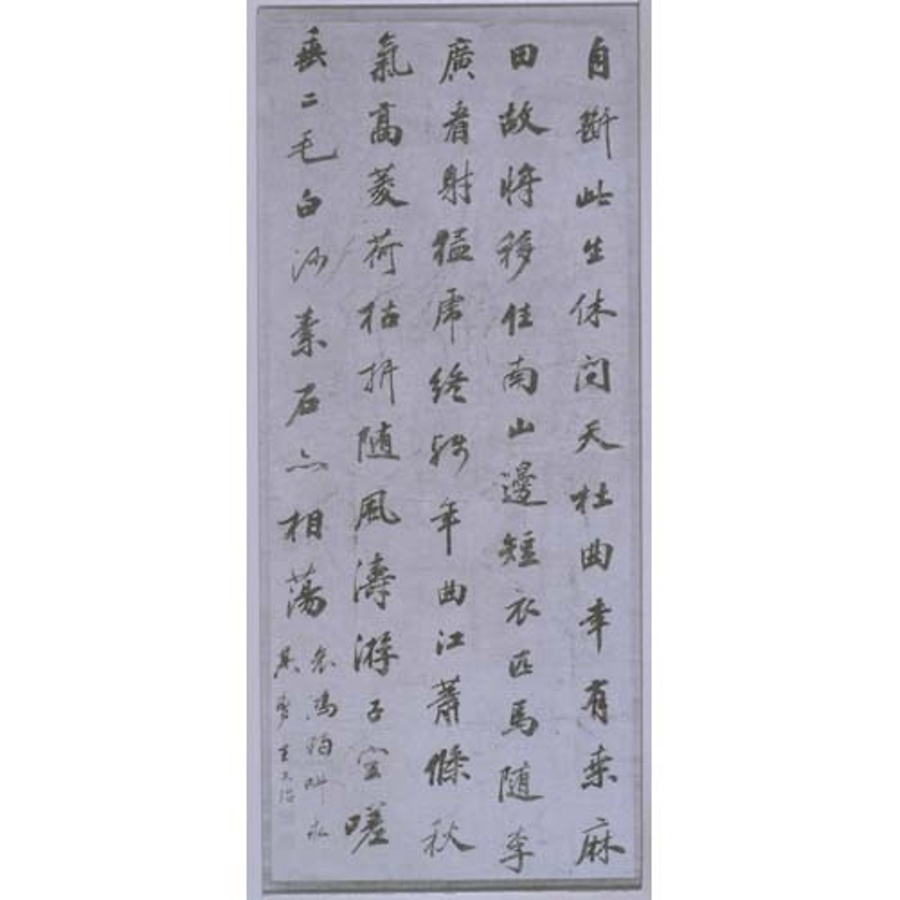 自斷此生休問天杜曲幸有桑麻
田故將移住南山邊短衣匹馬随李
廣看射猛虎終殘年曲江蕭條秋
氣高菱荷枯折随風濤游子空嗟
垂二毛白沙素石亦相蕩
哀鴻獨叫求
其曹王文治